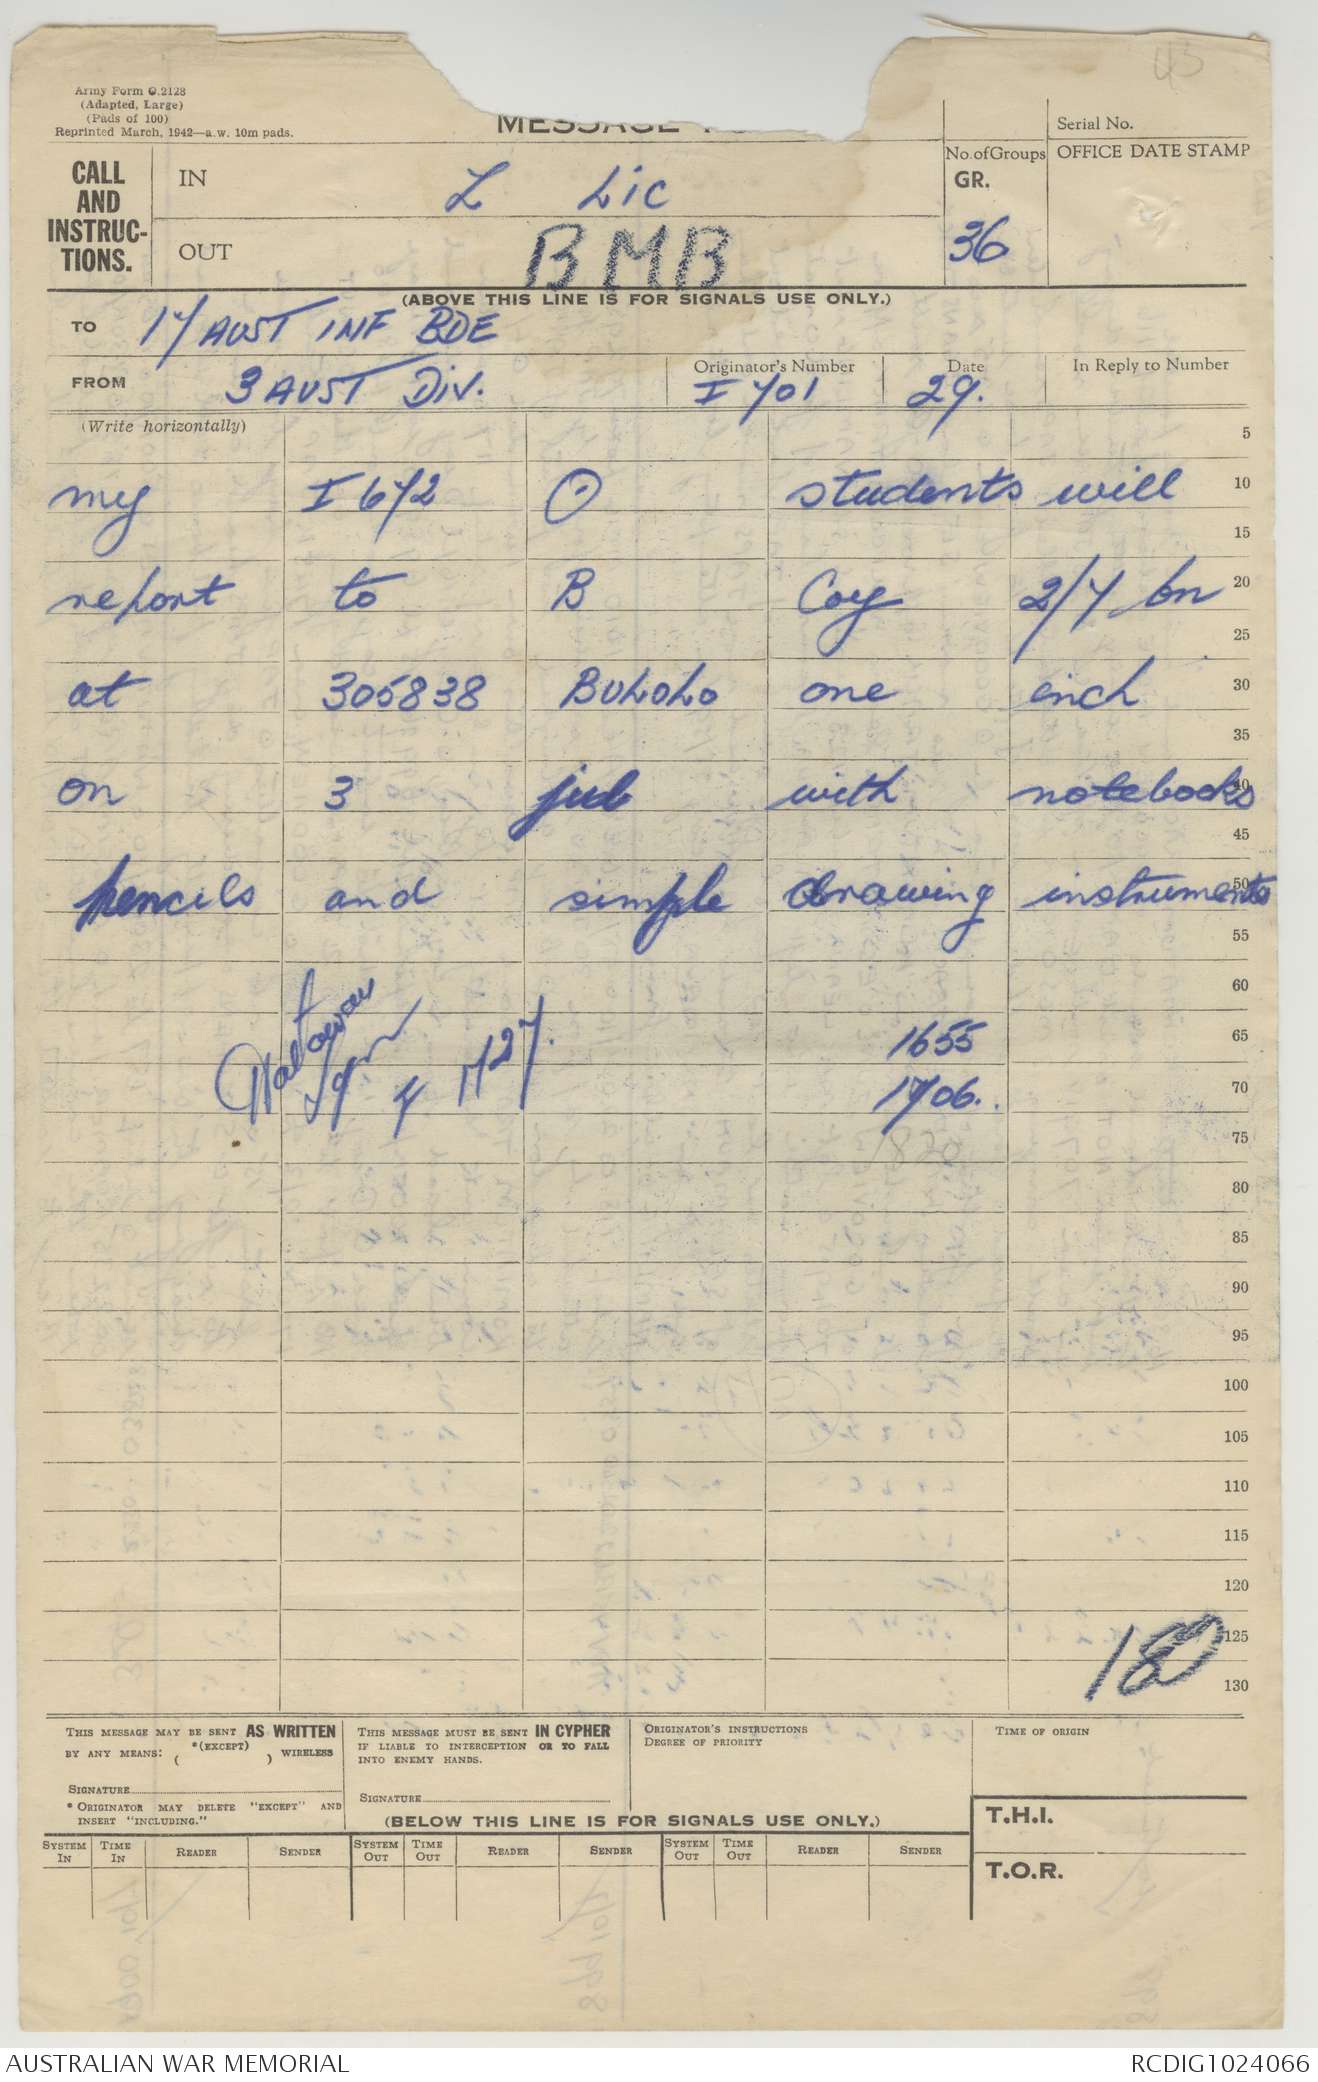 43
Army Form C.2128
(Adapted, Large)
(Pads of 100)
Reprinted March, 1942—a.w. 10m pads.
MESSAGE
Serial No.
CALL AND INSTRUC-TIONS.
IN
Z LIC
No. of Groups
GR.
36
OFFICE DATE STAMP
OUT
BMB
(ABOVE THIS LINE IS FOR SIGNALS USE ONLY.)
TO 17 AUST INF BDE
FROM 3 AUST DIV.
Originator's Number
I 701
Date
29.
In Reply to Number
(Write horizontally)
5
my I 672 ⊙ students will 10
15
report to B Coy 2/7 bn 20
25
at 305838 BULOLO one inch 30
35
on 3 jul with notebooks 40
45
pencils and simple drawing instruments 50
55
60
1655 65
4 1727.
1706. 70
1820 75
80
85
90
95
100
105
110
115
120
180 125
130
THIS MESSAGE MAY BE SENT AS WRITTEN
BY ANY MEANS: *(EXCEPT) ( ) WIRELESS
SIGNATURE
* ORIGINATOR MAY DELETE "EXCEPT" AND INSERT "INCLUDING."
THIS MESSAGE MUST BE SENT IN CYPHER
IF LIABLE TO INTERCEPTION OR TO FALL
INTO ENEMY HANDS.
SIGNATURE
ORIGINATOR'S INSTRUCTIONS
DEGREE OF PRIORITY
TIME OF ORIGIN
(BELOW THIS LINE IS FOR SIGNALS USE ONLY.)
T.H.I.
SYSTEM IN TIME IN READER SENDER SYSTEM OUT TIME OUT READER SENDER SYSTEM OUT TIME OUT READER SENDER
T.O.R.
AUSTRALIAN WAR MEMORIAL
RCDIG1024066